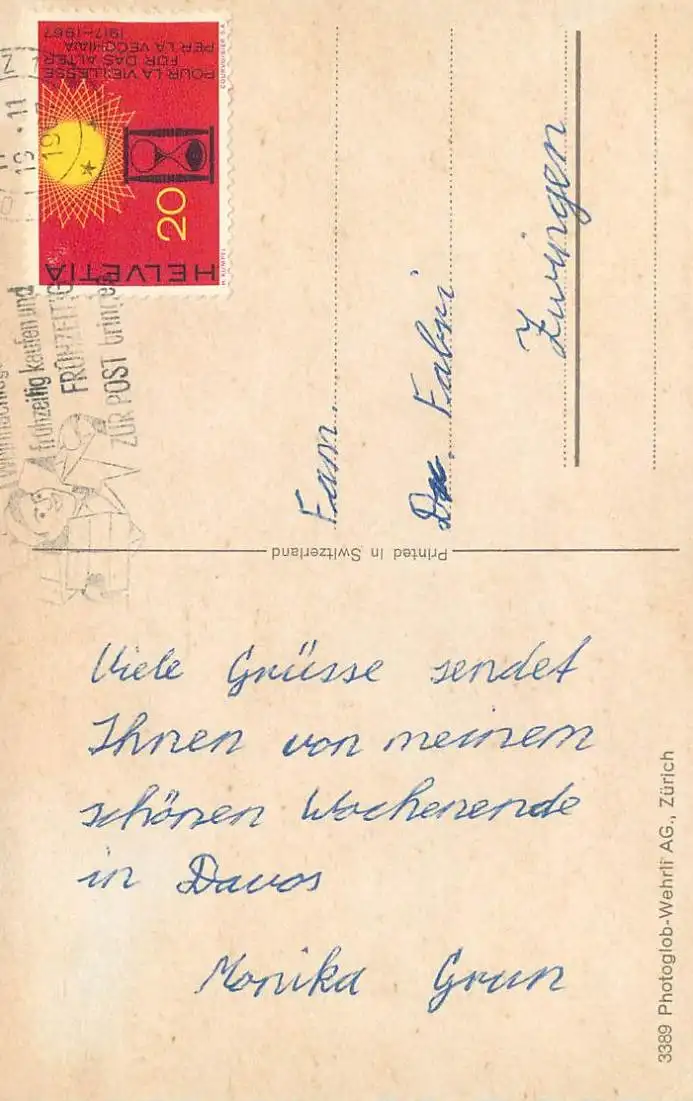 POUR LA VIEILLESSE
FÜR DAS ALTER
PER LA VECCHIAIA
1917–1967
COURVOISIER S.A.
20
HELVETIA
H. KÜMPEL
frühzeitig kaufen und
FRÜHZEITIG
ZUR POST bringen
Fam.
Dr. Fabri
Zwingen
Printed in Switzerland
Viele Grüsse sendet
Ihnen von meinem
schönen Wochenende
in Davos
Monika Grun
3389 Photoglob-Wehrli AG., Zürich